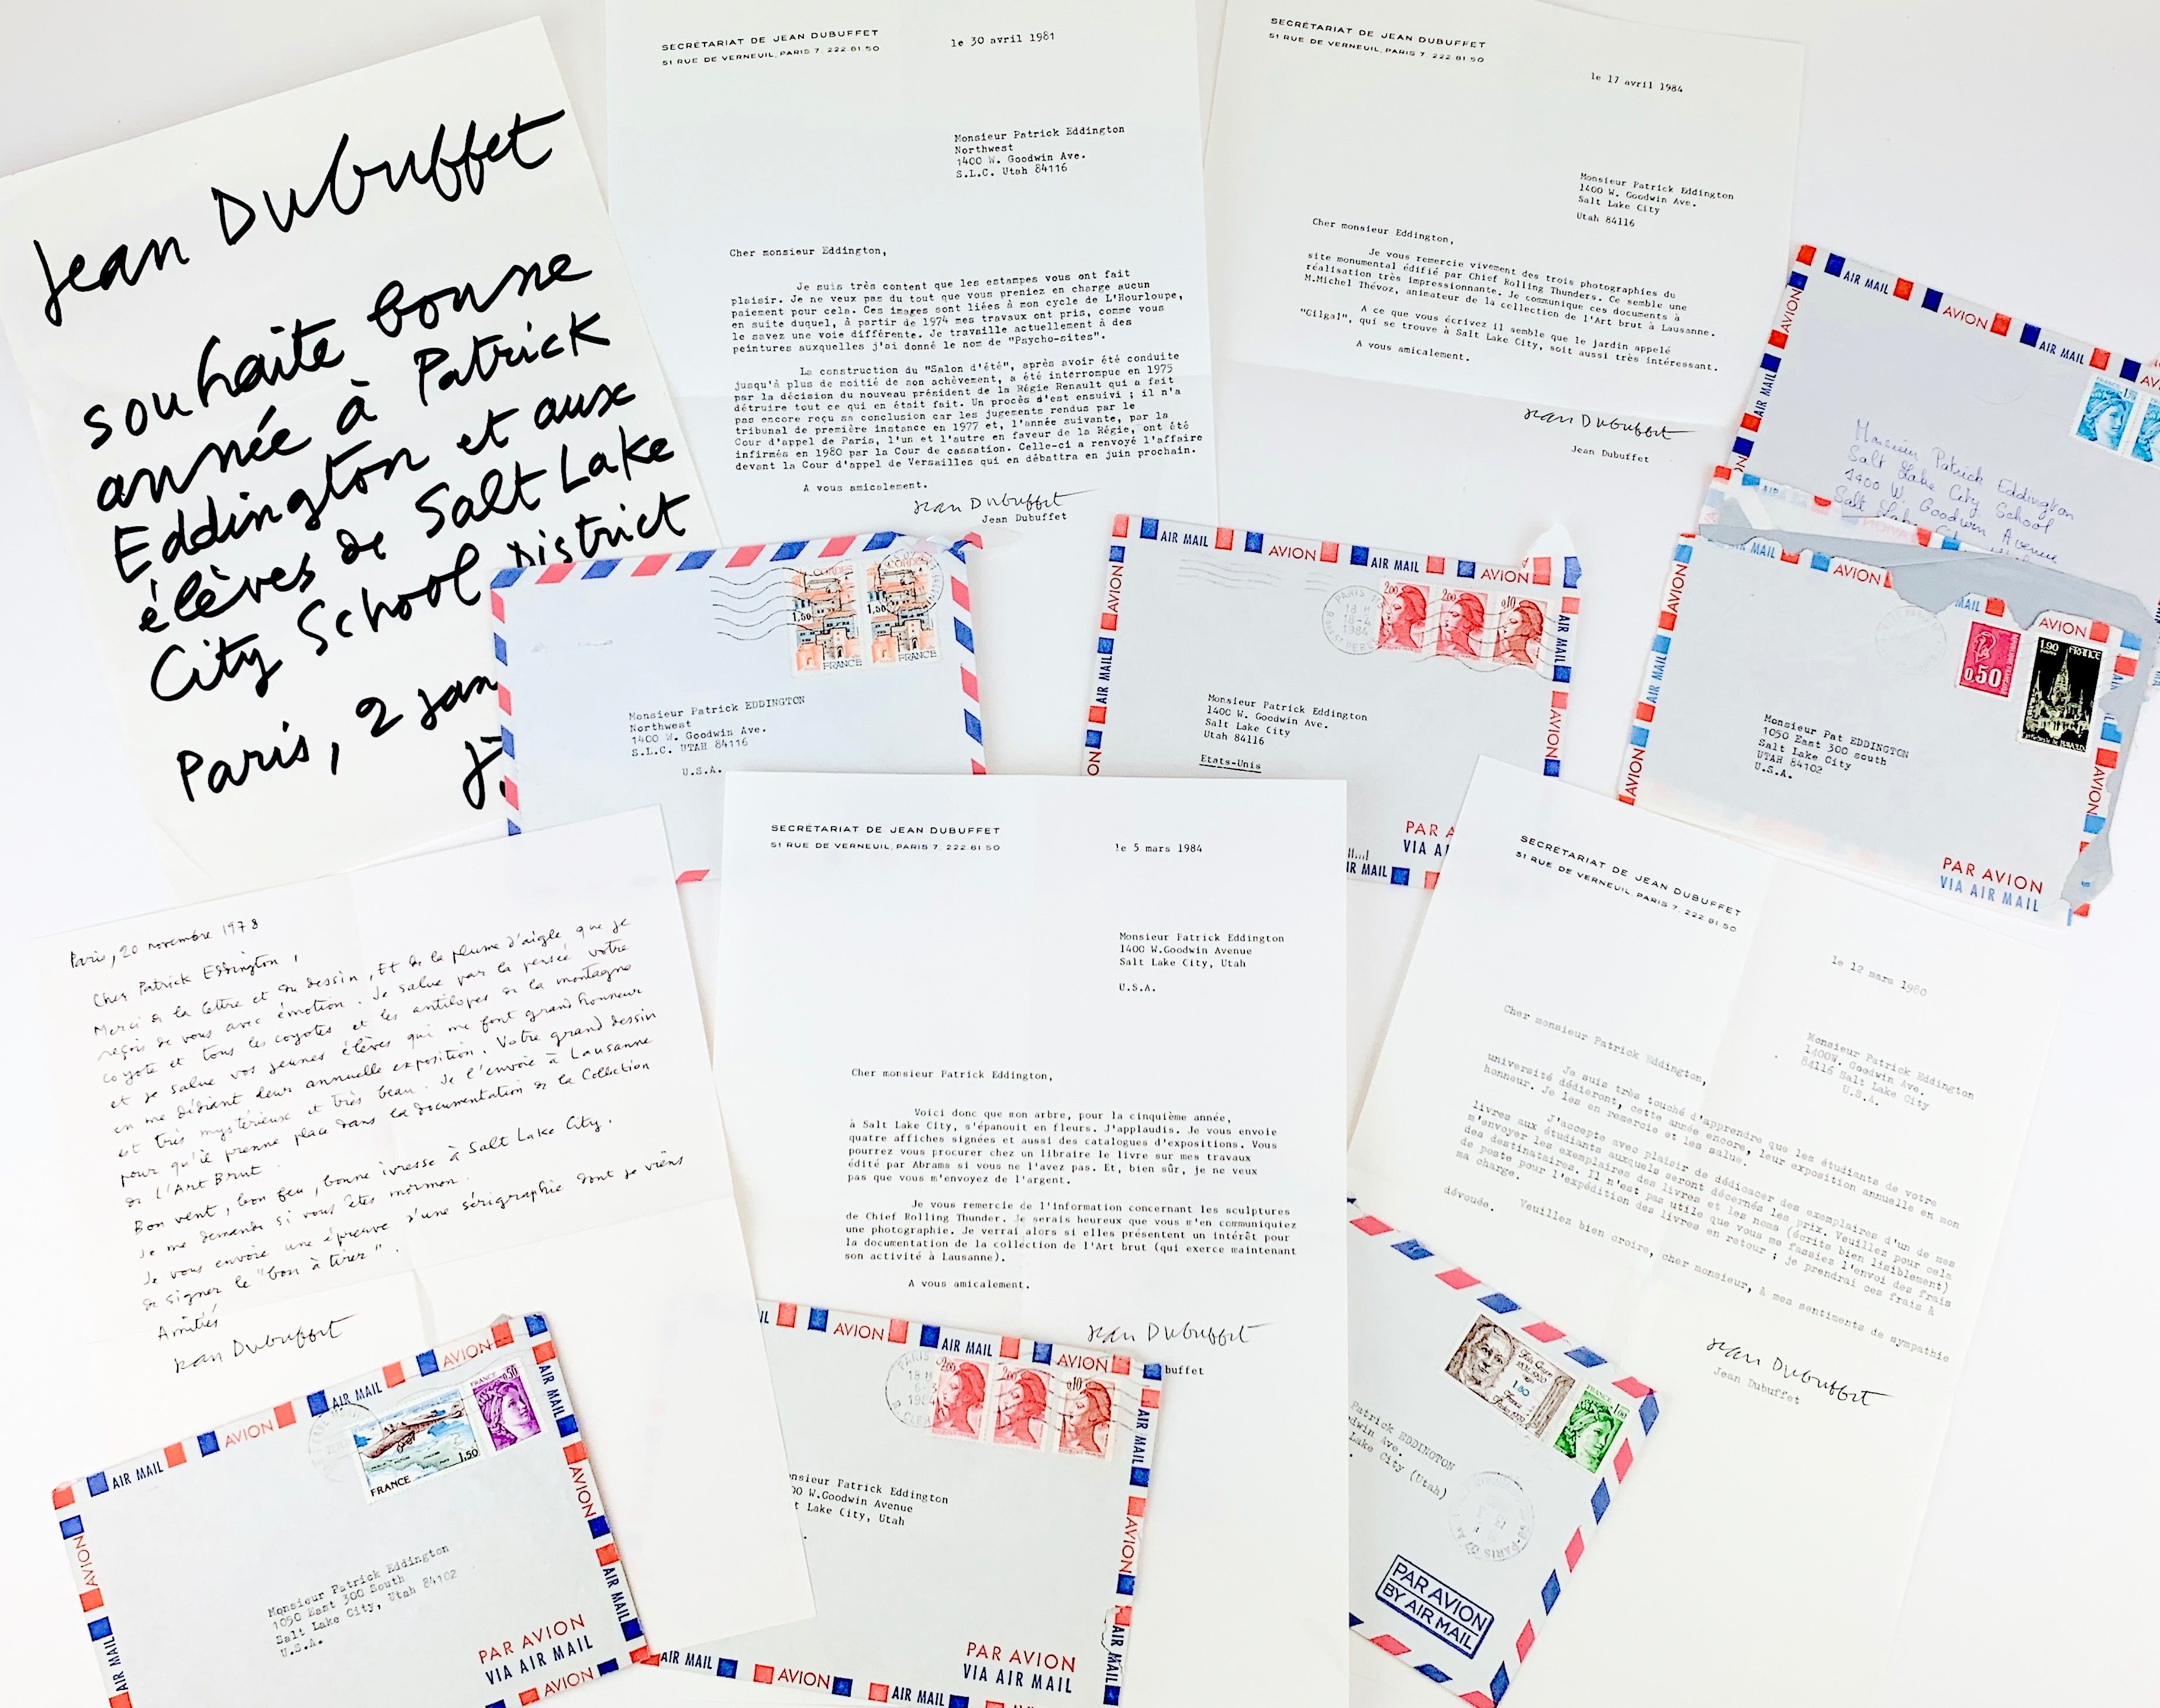 Jean Dubuffet
souhaite bonne
année à Patrick
Eddington et aux
élèves de Salt Lake
City School District
Paris, 2 jan
J.
SECRÉTARIAT DE JEAN DUBUFFET
51 RUE DE VERNEUIL, PARIS 7. 222 81 50
le 30 avril 1981
Monsieur Patrick Eddington
Northwest
1400 W. Goodwin Ave.
S.L.C. Utah 84116
Cher monsieur Eddington,
Je suis très content que les estampes vous ont fait
plaisir. Je ne veux pas du tout que vous preniez en charge aucun
paiement pour cela. Ces images sont liées à mon cycle de L'Hourloupe,
en suite duquel, à partir de 1974 mes travaux ont pris, comme vous
le savez une voie différente. Je travaille actuellement à des
peintures auxquelles j'ai donné le nom de "Psycho-sites".
La construction du "Salon d'été", après avoir été conduite
jusqu'à plus de moitié de son achèvement, a été interrompue en 1975
par la décision du nouveau président de la Régie Renault qui a fait
détruire tout ce qui en était fait. Un procès s'est ensuivi ; il n'a
pas encore reçu sa conclusion car les jugements rendus par le
tribunal de première instance en 1977 et, l'année suivante, par la
Cour d'appel de Paris, l'un et l'autre en faveur de la Régie, ont été
infirmés en 1980 par la Cour de cassation. Celle-ci a renvoyé l'affaire
devant la Cour d'appel de Versailles qui en débattra en juin prochain.
A vous amicalement.
Jean Dubuffet
Jean Dubuffet
SECRÉTARIAT DE JEAN DUBUFFET
51 RUE DE VERNEUIL, PARIS 7. 222 81 50
le 17 avril 1984
Monsieur Patrick Eddington
1400 W. Goodwin Ave.
Salt Lake City
Utah 84116
Cher monsieur Eddington,
Je vous remercie vivement des trois photographies du
site monumental édifié par Chief Rolling Thunders. Ce semble une
réalisation très impressionnante. Je communique ces documents à
M.Michel Thévoz, animateur de la collection de l'Art brut à Lausanne.
A ce que vous écrivez il semble que le jardin appelé
"Gilgal", qui se trouve à Salt Lake City, soit aussi très intéressant.
A vous amicalement.
Jean Dubuffet
Jean Dubuffet
AIR MAIL AVION AIR MAIL
AVION
AIR MAIL
Monsieur Patrick Eddington
Salt Lake City School
1400 W. Goodwin Avenue
Salt Lake City
CORDES
1,50
FRANCE
CORDES
1,50
FRANCE
Monsieur Patrick EDDINGTON
Northwest
1400 W. Goodwin Ave.
S.L.C. UTAH 84116
U.S.A.
AIR MAIL AVION AIR MAIL AVION
AVION
AIR MAIL
AVION
PARIS
18 H
18-4
1984
2,00
2,00
0,10
AIR MAIL
AVION
Monsieur Patrick Eddington
1400 W. Goodwin Ave.
Salt Lake City
Utah 84116
Etats-Unis
PAR A
VIA AI
IR MAIL
MAIL AVION MAIL AVION
AVION
AIR MAIL
AVION
0,50
1,90 FRANCE
Monsieur Pat EDDINGTON
1050 East 300 south
Salt Lake City
UTAH 84102
U.S.A.
AVION
PAR AVION
VIA AIR MAIL
Paris, 20 novembre 1978
Cher Patrick Eddington,
Merci de la lettre et du dessin, et de la plume d'aigle que je
reçois de vous avec émotion. Je salue par la pensée votre
coyote et tous les coyotes et les antilopes de la montagne
et je salue vos jeunes élèves qui me font grand honneur
en me dédiant leur annuelle exposition. Votre grand dessin
est très mystérieux et très beau. Je l'envoie à Lausanne
pour qu'il prenne place dans la documentation de la Collection
de l'Art Brut.
Bon vent, bon feu, bonne ivresse à Salt Lake City.
Je me demande si vous êtes mormon.
Je vous envoie une épreuve d'une sérigraphie dont je viens
de signer le "bon à tirer".
Amitiés
Jean Dubuffet
SECRÉTARIAT DE JEAN DUBUFFET
51 RUE DE VERNEUIL, PARIS 7. 222 81 50
le 5 mars 1984
Monsieur Patrick Eddington
1400 W.Goodwin Avenue
Salt Lake City, Utah
U.S.A.
Cher monsieur Patrick Eddington,
Voici donc que mon arbre, pour la cinquième année,
à Salt Lake City, s'épanouit en fleurs. J'applaudis. Je vous envoie
quatre affiches signées et aussi des catalogues d'expositions. Vous
pourrez vous procurer chez un libraire le livre sur mes travaux
édité par Abrams si vous ne l'avez pas. Et, bien sûr, je ne veux
pas que vous m'envoyez de l'argent.
Je vous remercie de l'information concernant les sculptures
de Chief Rolling Thunder. Je serais heureux que vous m'en communiquiez
une photographie. Je verrai alors si elles présentent un intérêt pour
la documentation de la collection de l'Art brut (qui exerce maintenant
son activité à Lausanne).
A vous amicalement.
Jean Dubuffet
buffet
SECRÉTARIAT DE JEAN DUBUFFET
51 RUE DE VERNEUIL, PARIS 7. 222 81 50
le 12 mars 1980
Monsieur Patrick Eddington
1400W. Goodwin Ave.
84116 Salt Lake City
U.S.A.
Cher monsieur Patrick Eddington,
Je suis très touché d'apprendre que les étudiants de votre
université dédieront, cette année encore, leur exposition annuelle en mon
honneur. Je les en remercie et les salue.
J'accepte avec plaisir de dédicacer des exemplaires d'un de mes
livres aux étudiants auxquels seront décernés les prix. Veuillez pour cela
m'envoyer les exemplaires des livres et les noms (écrits bien lisiblement)
des destinataires. Il n'est pas utile que vous me fassiez l'envoi des frais
de poste pour l'expédition des livres en retour ; je prendrai ces frais à
ma charge.
Veuillez bien croire, cher monsieur, à mes sentiments de sympathie
dévouée.
Jean Dubuffet
Jean Dubuffet
AIR MAIL AVION AIR MAIL AVION
AVION
AIR MAIL
FRANCE 1,50
FRANCE 0,50
AIR MAIL
AVION
AIR MAIL
Monsieur Patrick Eddington
1050 East 300 South
Salt Lake City, Utah 84102
U.S.A.
PAR AVION
VIA AIR MAIL
AVION
IL AVION AIR MAIL AVION
PARIS
18 H
6-3
1984
2,00
2,00
0,10
AIR MAIL
AVION
AIR MAIL
nsieur Patrick Eddington
00 W.Goodwin Avenue
t Lake City, Utah
PAR AVION
VIA AIR MAIL
AIR MAIL AVION AIR MAIL
1,80
FRANCE 1,00
Patrick EDDINGTON
dwin Ave.
Lake City (Utah)
PARIS
PAR AVION
BY AIR MAIL